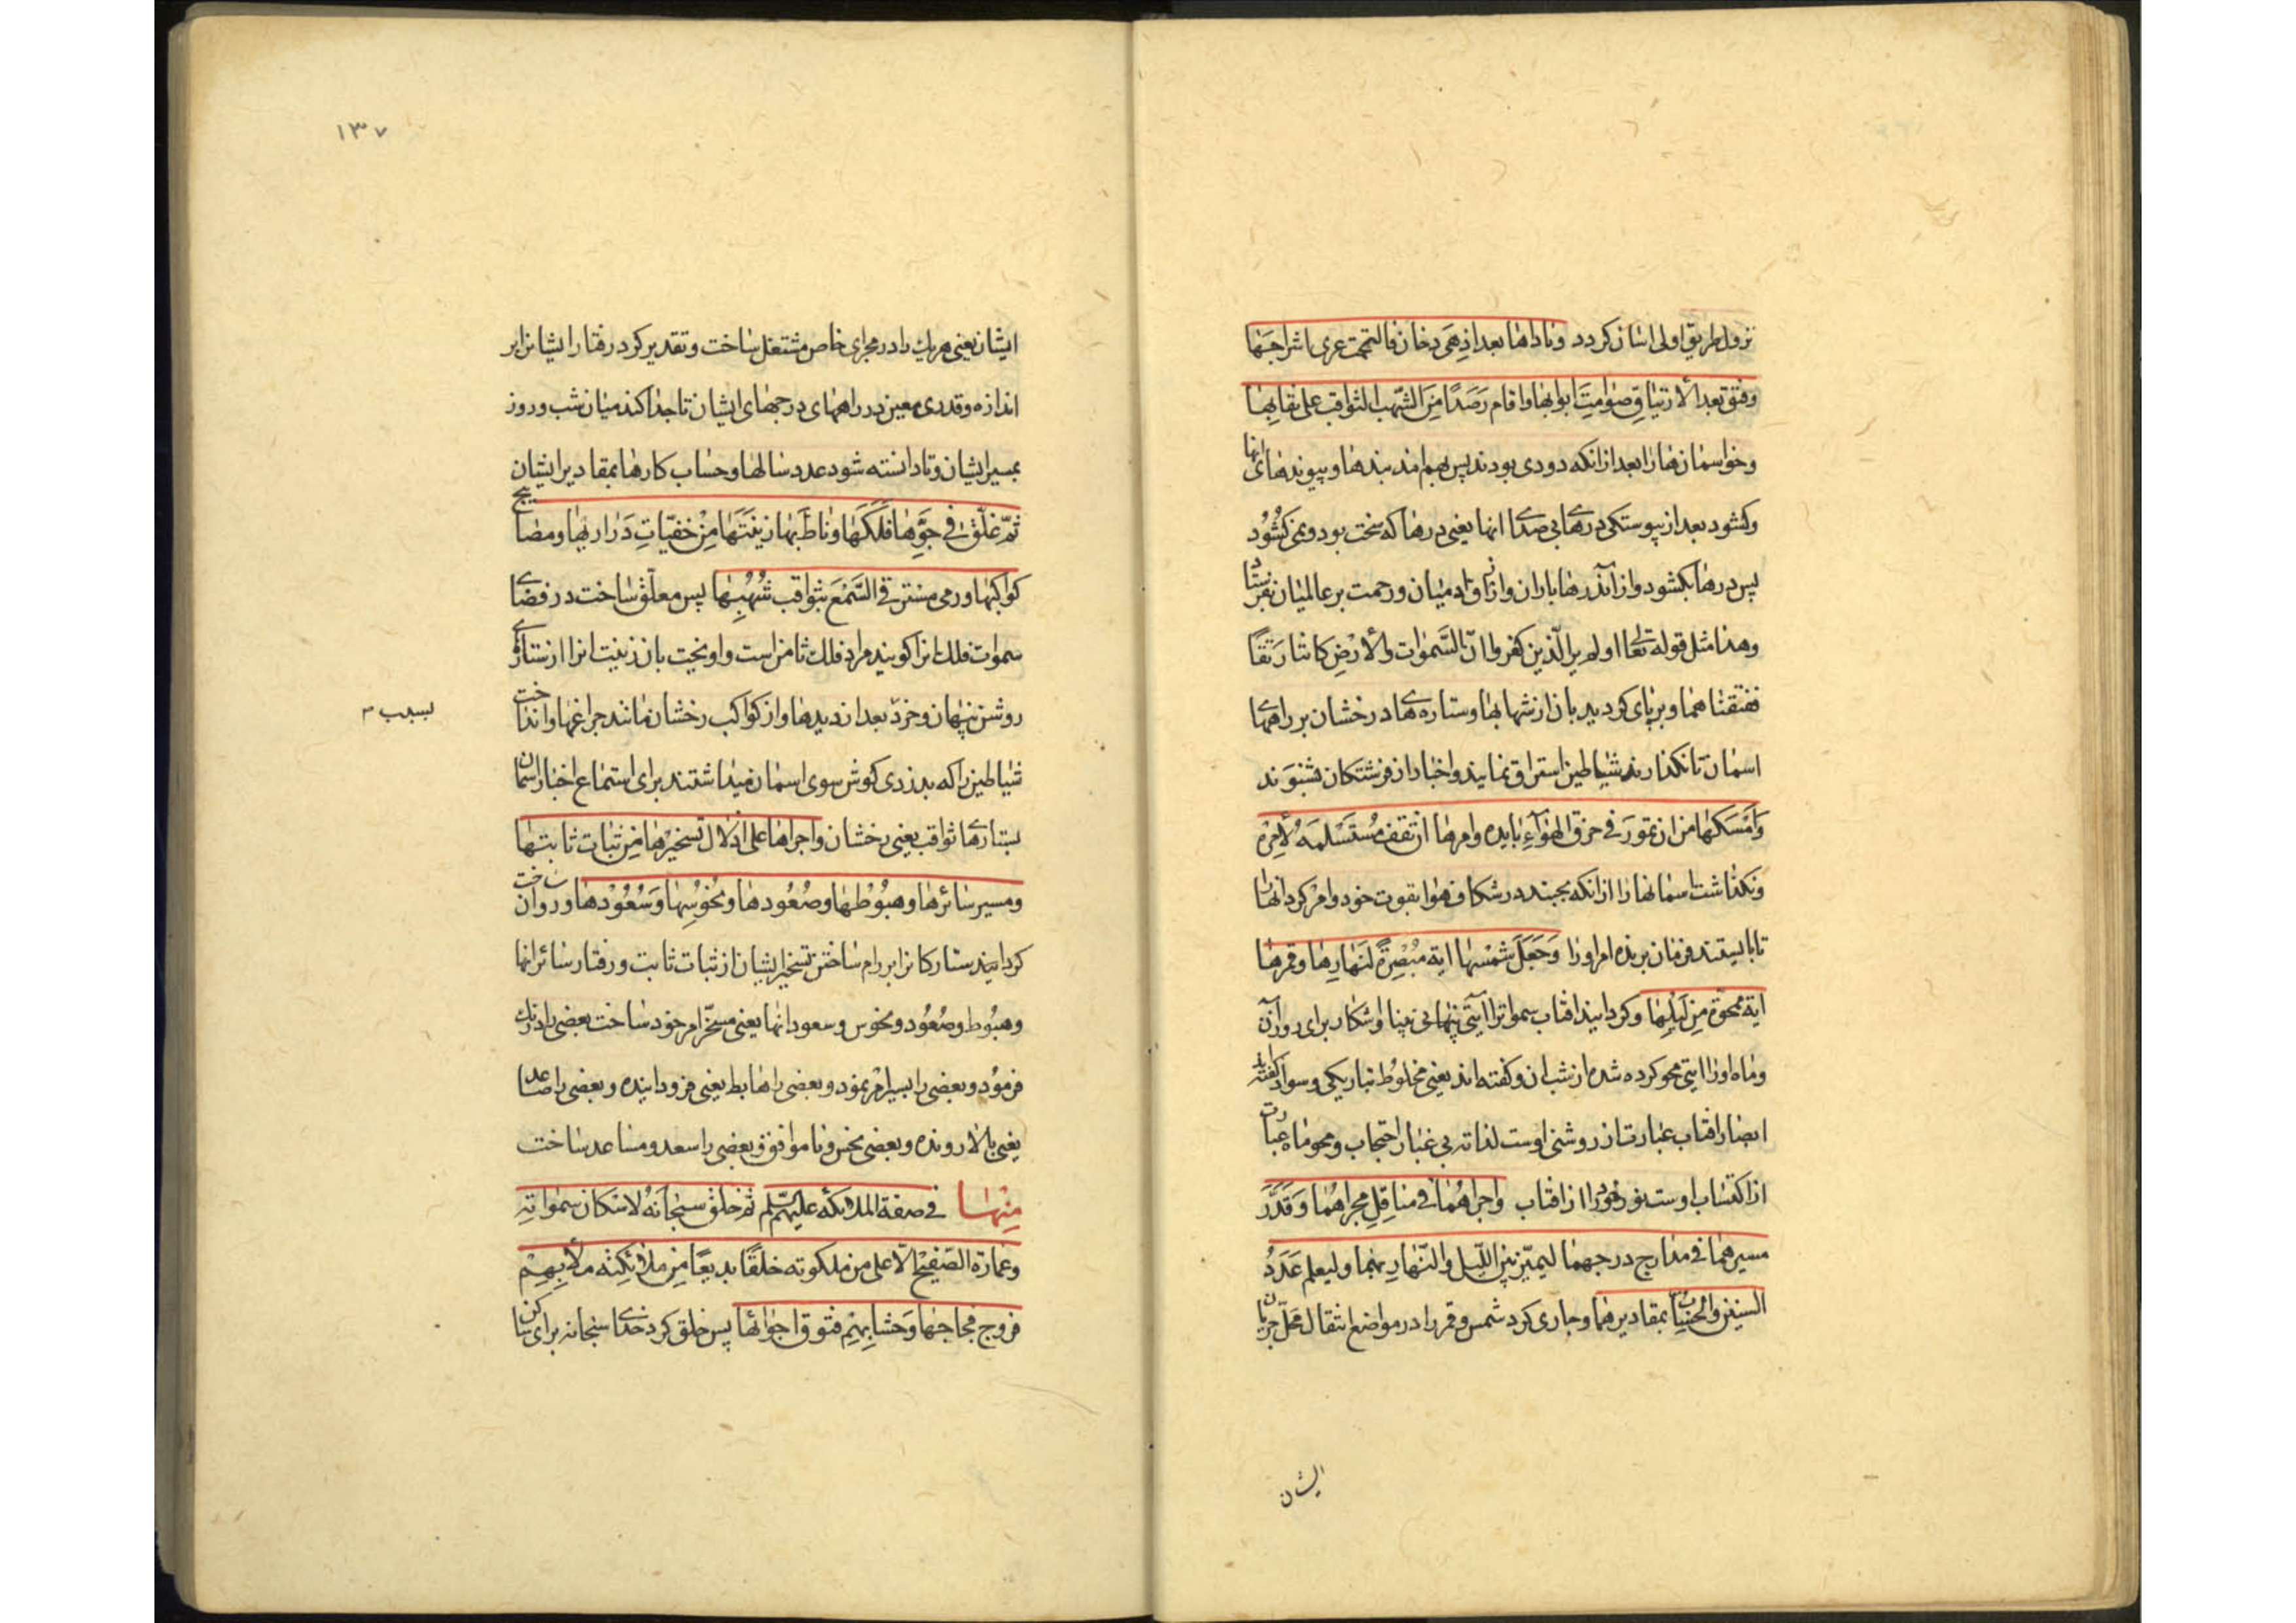 نزول طریق اولی اسان کردد وناداها بعد اذ هی دخان فالتحمت عری اشراجها
وفتق بعد الارتتاق صوامت ابوابها واقام رصدا من الشهب الثواقب علی نقابها
وخواسمانها را بعد از انکه دودی بودند پس بهم امدند بندها وپیوندهای انها
وکشود بعد از پیوستکی درهای بی صدای انها یعنی درها که سخت بود ونمی کشود
پس درها بکشود واز آن درها باران و ورحمت بر عالمیان
وهذا مثل قوله تعالی اولم یر الذین کفروا ان السموات والارض کانتا رتقا
ففتقناهما وبرپای کرد دید بان از شهابها وستاره های درخشان بر راههای
اسمان تا نکذارند شیاطین استراق نمایند واخبار از فرشتکان نشنوند
وامسکها من ان تمور فی خرق الهواء بایده وامرها ان تقف مستسلمة لامره
ونکذاشت اسمانها را از انکه بجنبند در شکاف هوا بقوت خود وامر کرد انها را
تا بایستند فرمان برنده امر او را وجعل شمسها ایة مبصرة لنهارها وقمرها
ایة ممحوة من لیلها وکردانید افتاب سموات را آیتی بینا واشکار برای روز آن
وماه او را ایتی محو کرده شده از شب ان وکفته اند یعنی مخلوط بتاریکی وسواد کفته اند
ابصار افتاب عبارت از روشنی اوست لذاته بی غبار احتجاب ومحو ماه عبارت
از اکتساب اوست نور خود را از افتاب واجراهما فی مناقل مجراهما وقدر
مسیرهما فی مدارج درجهما لیمیز بین اللیل والنهار بهما ولیعلم عدد
السنین والحساب بمقادیرهما وجاری کرد شمس وقمر را در مواضع انتقال محل جریان
ایشان
۱۳۷
ایشان یعنی هر یک را در مجرای خاص مشتغل ساخت وتقدیر کرد رفتار ایشانرا بر
اندازه وقدری معین در راههای درجهای ایشان تا جدا کند میان شب وروز
بمسیر ایشان وتا دانسته شود عدد سالها وحساب کارها بمقادیر ایشان
ثم علق فی جوها فلکها وناط بها زینتها من خفیات دراریها ومصابیح
کواکبها ورمی مسترقی السمع بثواقب شهبها پس معلق ساخت در فضای
سموات فلک انرا کویند مراد فلک ثامن است واویخت بان زینت انرا از ستارهای
روشن پنهان وخرد بعد از دیدها واز کواکب رخشان مانند چراغها وانداخت
شیاطین را که بدزدی کوش سوی اسمان میداشتند برای استماع اخبار اسمان
لسبب
بستارهای ثواقب یعنی رخشان واجراها علی اذلال تسخیرها من ثبات ثابتها
ومسیر سائرها وهبوطها وصعودها ونحوسها وسعودها وروان ساخت
کردانید ستارکانرا بر رام ساختن تسخیر ایشان از ثبات ثابت ورفتار سائر انها
وهبوط وصعود ونحوس وسعود انها یعنی مسخر امر خود ساخت بعضی را
فرمود وبعضی را بسیر امر نمود وبعضی را هابط یعنی فرود اینده وبعضی را صاعد
یعنی بالا رونده وبعضی نحس وناموافق وبعضی را سعد ومساعد ساخت
منها فی صفة الملائکة علیهم السلم ثم خلق سبحانه لاسکان سمواته
وعمارة الصفیح الاعلی من ملکوته خلقا بدیعا من ملائکته ملأ بهم
فروج فجاجها وحشا بهم فتوق اجوائها پس خلق کرد خدای سبحانه برای ساکن